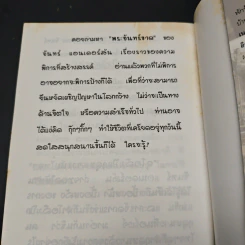 ลองตามหา "พระจันทร์ขาด" ของ
จันทร์ แอนเดอร์สัน เรื่องราวของความ
พิการที่สร้างสรรค์ อ่านแล้วพวกที่ไม่พิการ
อาจอยากจะพิการบ้างก็ได้ เพื่อที่ว่าจะสามารถ
ยืนหยัดเผชิญปัญหาในโลกกว้าง ไม่ว่าจะเป็นทาง
ด้านจิตใจ หรือความสำเร็จทั่วไป ท่านอาจ
ได้แง่คิด กุ๊กกุ๊กกู๋ ทำให้ชีวิตที่เครียดอยู่ทุกวันนี้
สดใสสนุกสนานขึ้นก็ได้ ใครจะรู้?